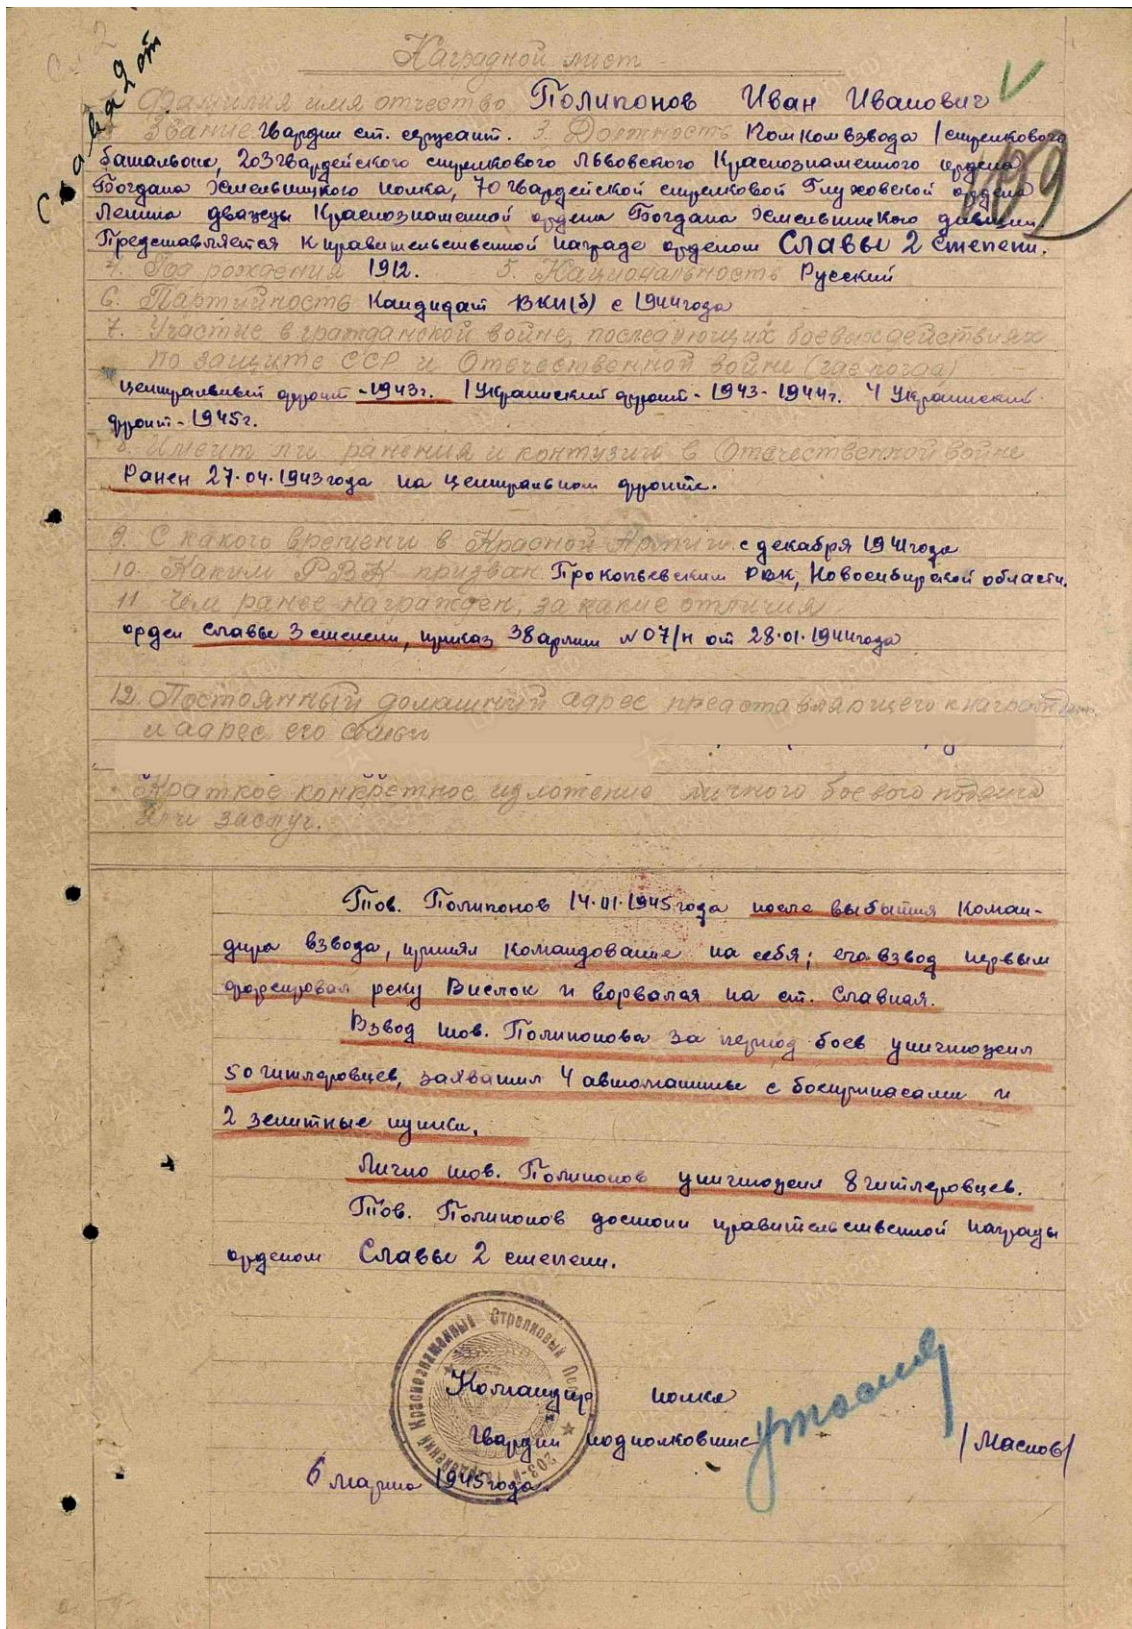 Слава 2 ст
Наградной лист
1. Фамилия имя отчество Полипонов Иван Иванович
2. Звание гвардии ст. сержант. 3. Должность Помкомвзвода 1 стрелкового
батальона, 203 гвардейского стрелкового Львовского Краснознаменного ордена
Богдана Хмельницкого полка, 70 гвардейской стрелковой Глуховской ордена
Ленина дважды Краснознаменной ордена Богдана Хмельницкого дивизии.
Представляется к правительственной награде орденом Славы 2 степени.
4. Год рождения 1912. 5. Национальность Русский
6. Партийность Кандидат ВКП(б) с 1944 года
7. Участие в гражданской войне, последующих боевых действиях
по защите ССР и Отечественной войне (где, когда)
Центральный фронт - 1943г. 1 Украинский фронт - 1943-1944г. 4 Украинский
фронт - 1945г.
8. Имеет ли ранения и контузии в Отечественной войне
Ранен 27.04.1943 года на Центральном фронте.
9. С какого времени в Красной Армии с декабря 1941 года
10. Каким РВК призван Прокопьевским РВК, Новосибирской области.
11. Чем ранее награжден, за какие отличия
орден Славы 3 степени, приказ 38 армии №07/н от 28.01.1944 года
12. Постоянный домашний адрес представляющего к награждению
и адрес его семьи
Краткое конкретное изложение личного боевого подвига
или заслуг.
Тов. Полипонов 14.III.1945 года после выбытия коман-
дира взвода, принял командование на себя; его взвод первым
форсировал реку Вислок и ворвался на ст. Славная.
Взвод тов. Полипонова за период боев уничтожил
50 гитлеровцев, захватил 4 автомашины с боеприпасами и
2 зенитные пушки.
Лично тов. Полипонов уничтожил 8 гитлеровцев.
Тов. Полипонов достоин правительственной награды
орденом Славы 2 степени.
203-й Гвардейский Краснознаменный Стрелковый Полк
Командир полка
Гвардии подполковник /Маслов/
6 марта 1945 года.